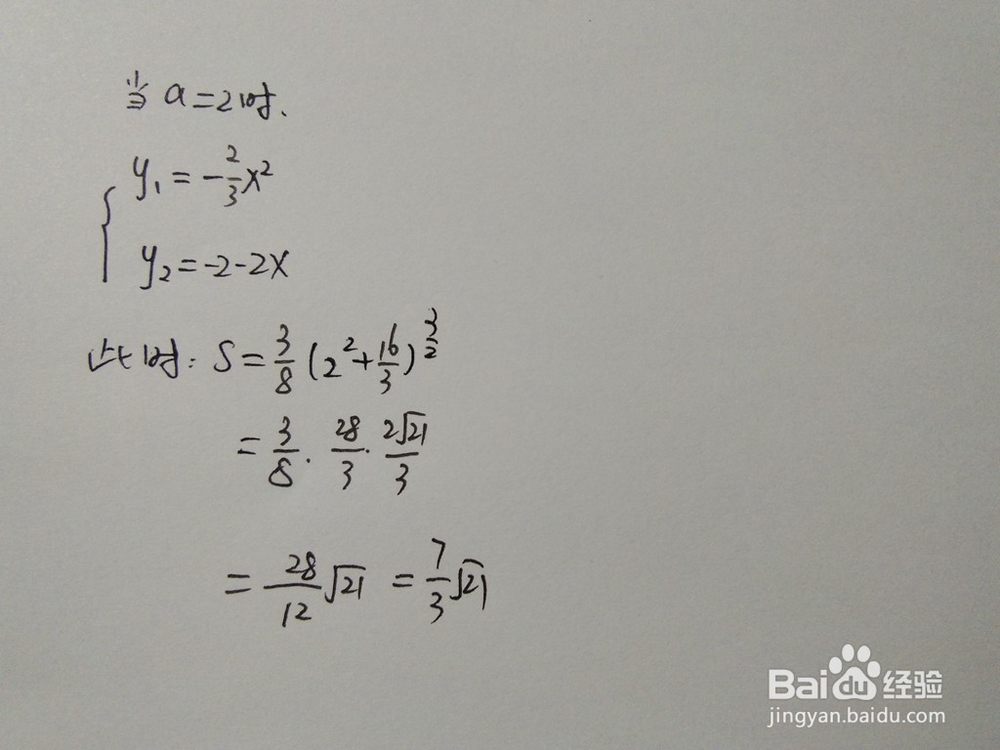 当 a=2时.
y₁=-2/3x²
y₂=-2-2x
此时: S=3/8(2²+16/3)^3/2
=3/8·28/3·2√21/3
=28/12√21=7/3√21
Baidu经验
jingyan.baidu.com